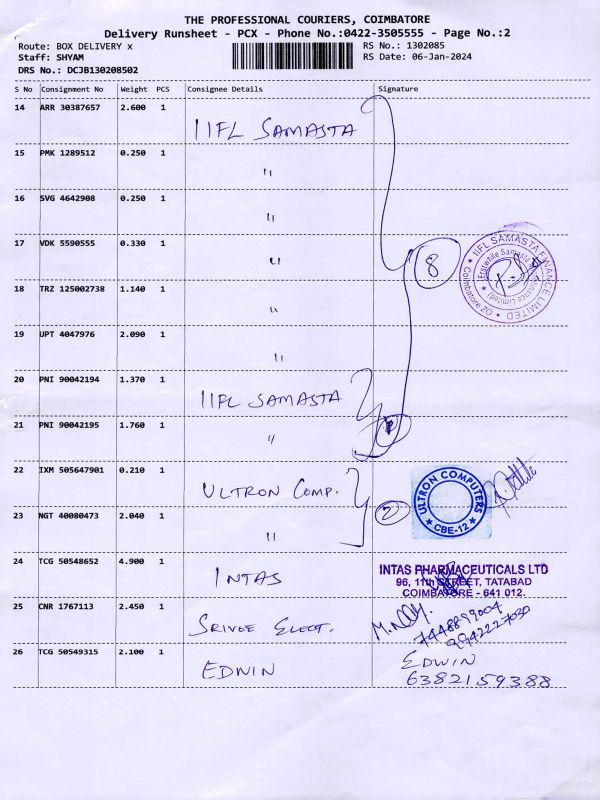 THE PROFESSIONAL COURIERS, COIMBATORE
Delivery Runsheet - PCX - Phone No.:0422-3505555 - Page No.:2
Route: BOX DELIVERY x
RS No.: 1302085
Staff: SHYAM
RS Date: 06-Jan-2024
DRS No.: DCJB130208502
S No Consignment No Weight PCS Consignee Details Signature
14 ARR 30387657 2.600 1 IIFL SAMASTA
15 PMK 1289512 0.250 1 "
16 SVG 4642908 0.250 1 "
17 VDK 5590555 0.330 1 "
8
IIFL SAMASTA FINANCE LIMITED
Coimbatore
18 TRZ 125002738 1.140 1 "
19 UPT 4047976 2.090 1 "
20 PNI 90042194 1.370 1 IIFL SAMASTA
21 PNI 90042195 1.760 1 "
22 IXM 505647901 0.210 1 ULTRON COMP.
2
ULTRON COMPUTERS
CBE-12
23 NGT 40080473 2.040 1 "
24 TCG 50548652 4.900 1 INTAS
INTAS PHARMACEUTICALS LTD
96, 11th STREET, TATABAD
COIMBATORE - 641 012.
25 CNR 1767113 2.450 1 SRIVEE ELECT.
7448899004
9942227030
26 TCG 50549315 2.100 1 EDWIN
EDWIN
6382159388